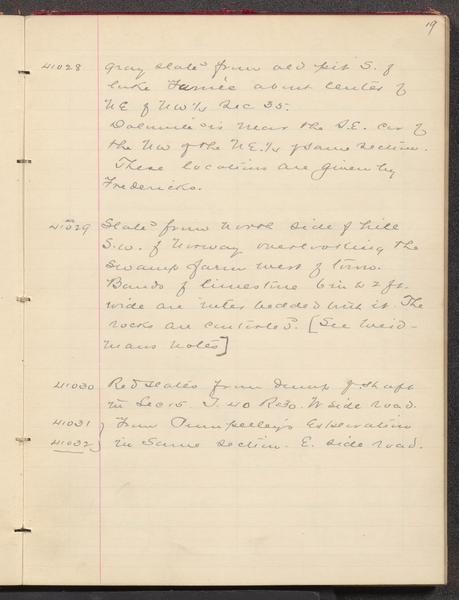 19
41028 Gray slates from old pit S. of
Lake Fumée about center of
NE of NW 1/4 Sec 35.
Dolomite is near the S.E. cor of
the NW of the NE. 1/4 of same section.
These locations are given by
Fredericks.
41029 Slates from North side of hill
S.W. of Norway overlooking the
swamp farm west of town.
Bands of limestone 6 in to 2 ft.
wide are interbedded with it. The
rocks are contorted. [See Weid-
mans notes]
41030 Red slates from dump of shaft
in Sec 15. T. 40 R30. W side road.
41031 From Pumpelly's Exploration
41032 in same section. E. side road.